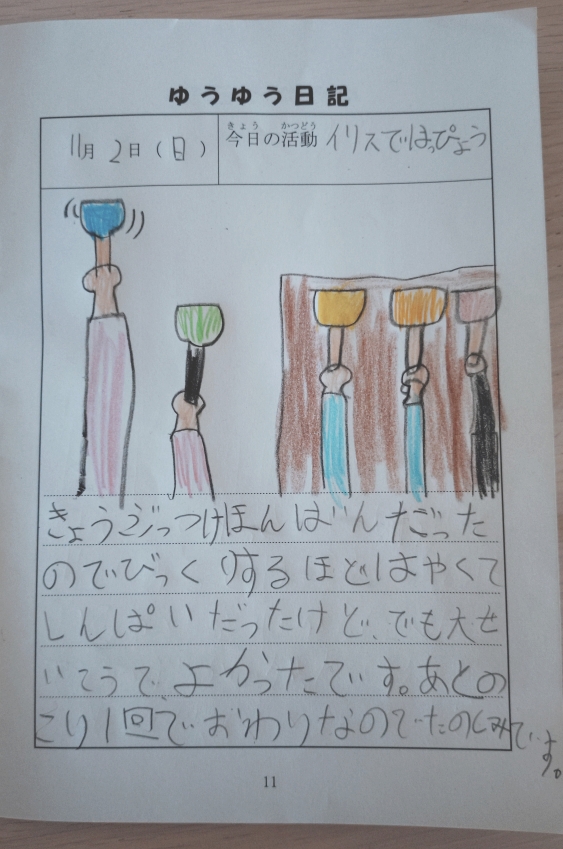 ゆうゆう日記
11月 2日(日)
今日の活動 イリスではっぴょう
きょうぶっつけほんばんだった
のでびっくりするほどはやくて
しんぱいだったけど、でも大せ
いこうで、よかったです。あとの
こり1回でおわりなのでたのしみです。
11